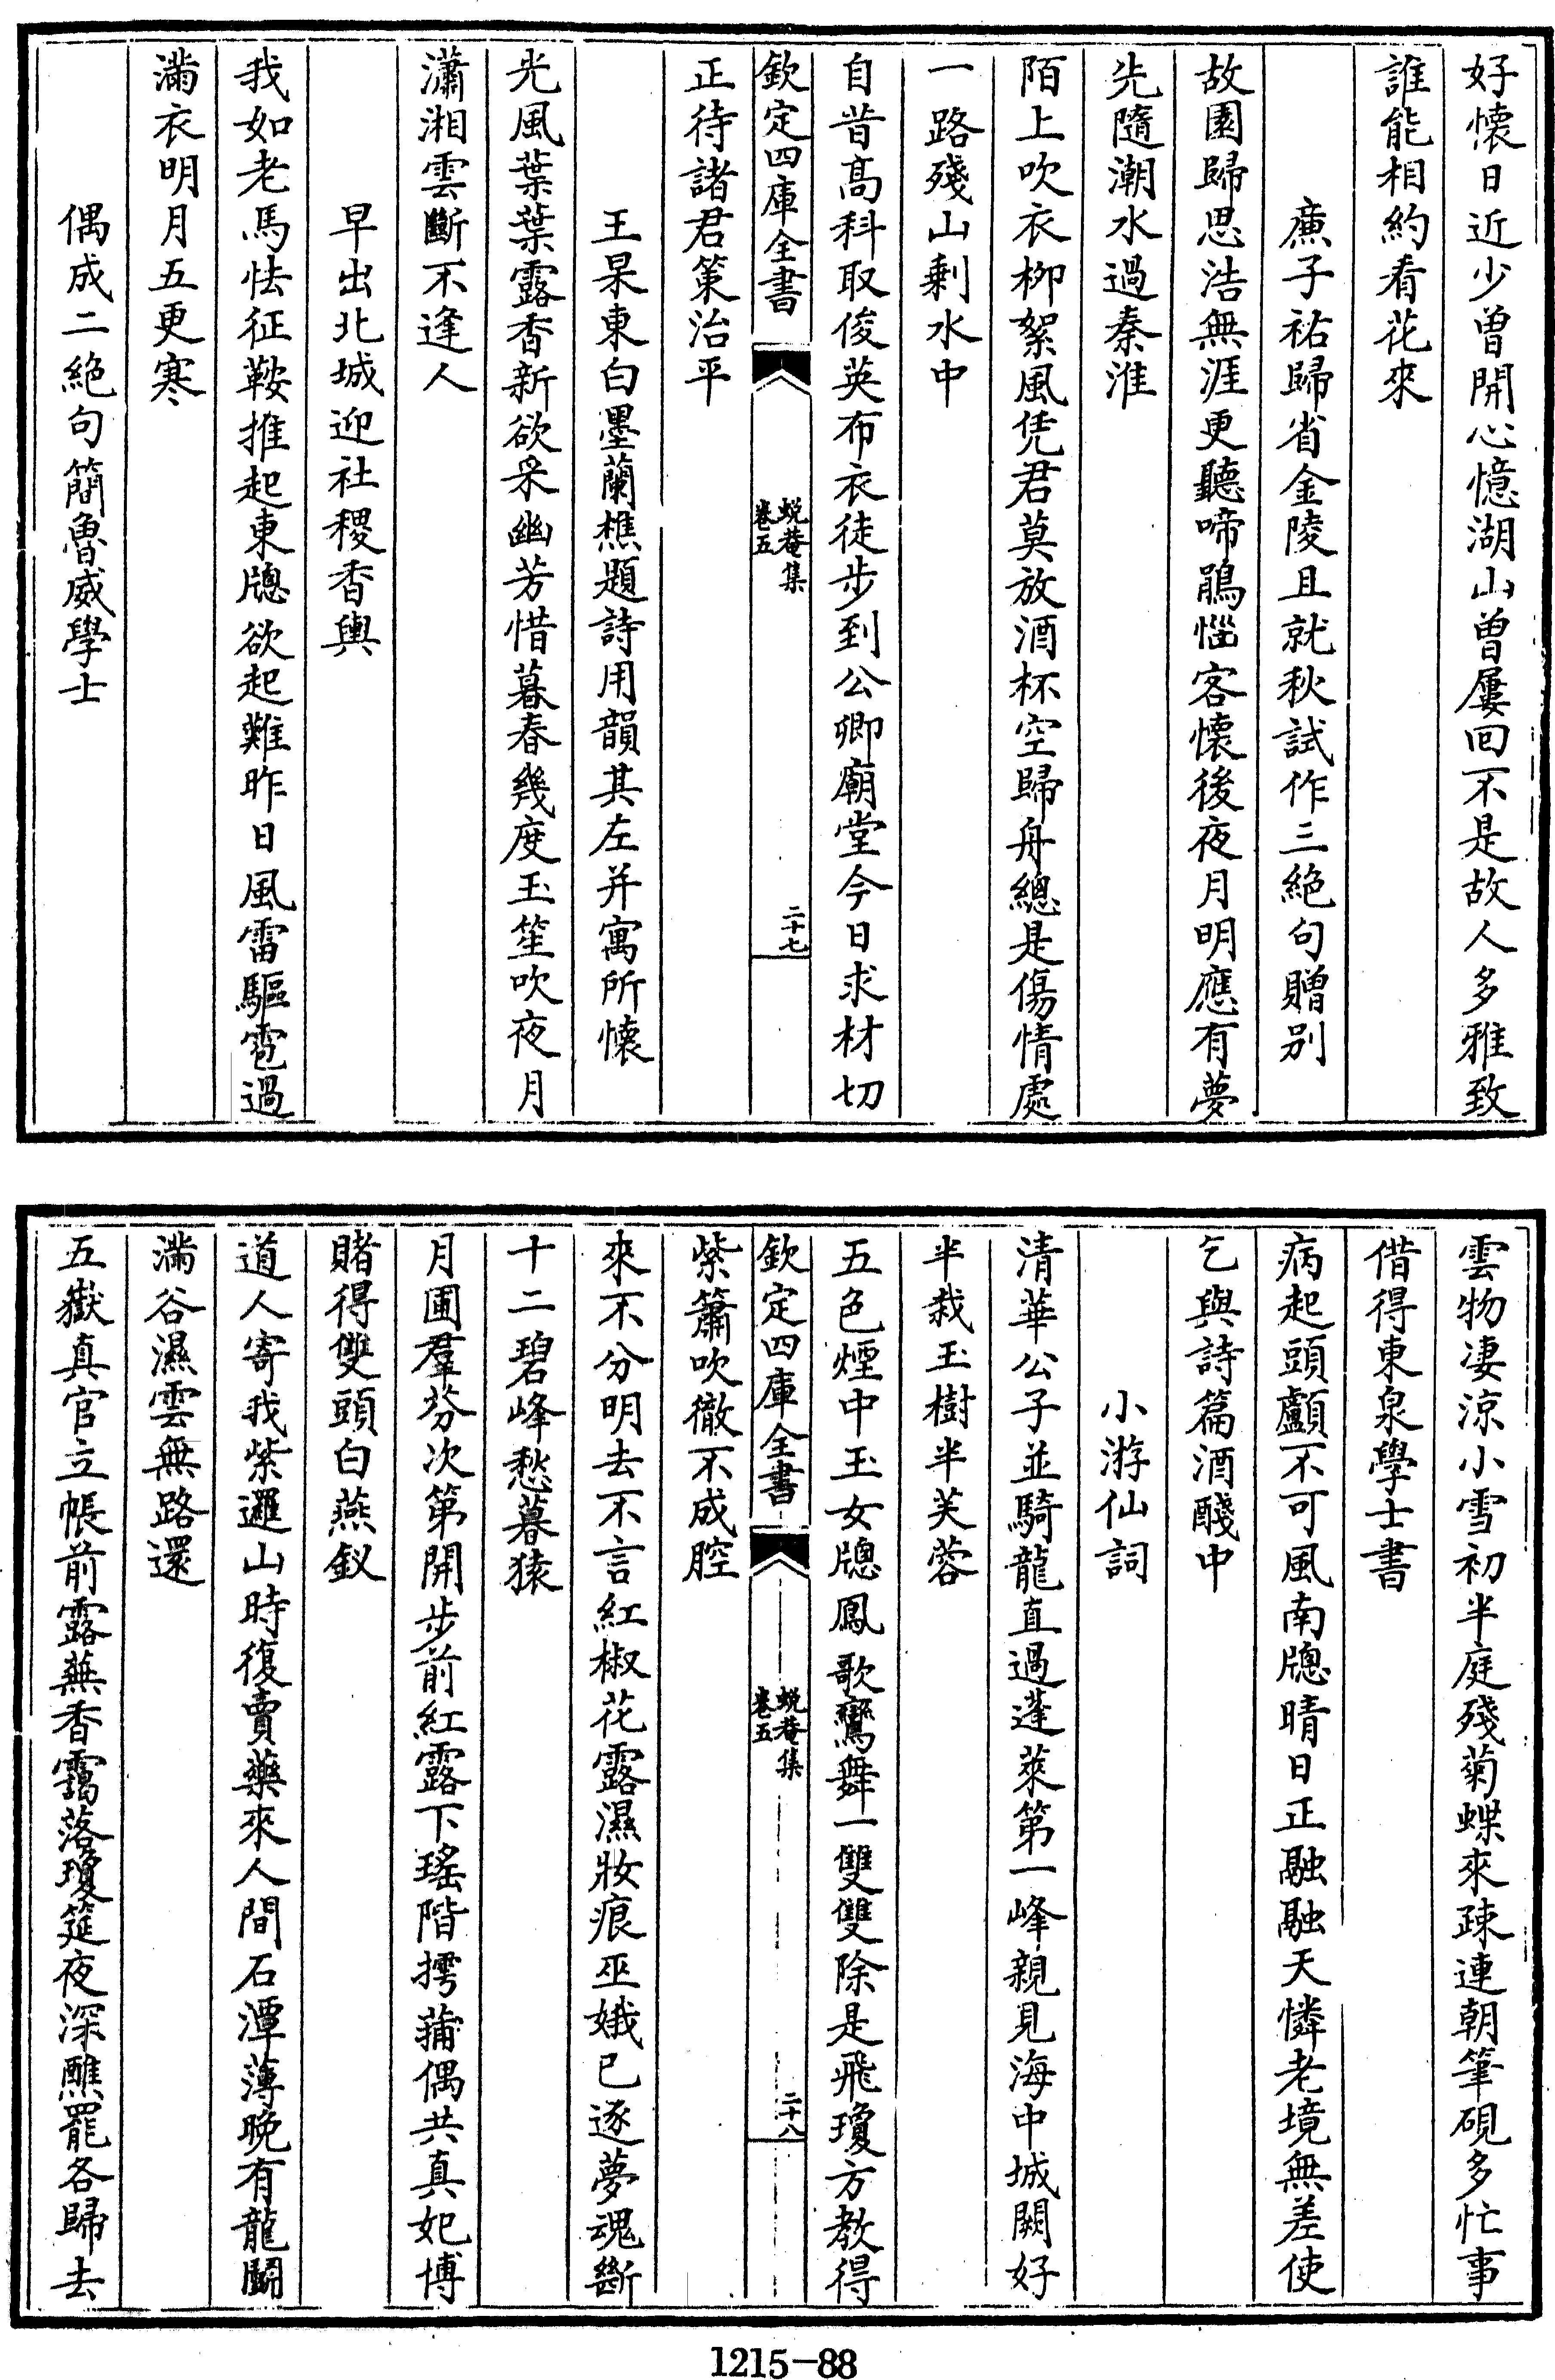 好懐日近少曽開心憶湖山曽屢回不是故人多雅致
誰能相約看花來
廉子祐歸省金陵且就秋試作三絶句贈别
故園歸思浩無涯更聽啼鵑惱客懐後夜月明應有夢
先隨潮水過秦淮
陌上吹衣栁絮風凭君莫放酒杯空歸舟總是傷情處
一路殘山剰水中
自昔髙科取俊英布衣徒步到公卿廟堂今日求材切
欽定四庫全書
蛻菴集
卷五
二十七
正待諸君策治平
王杲東白墨蘭樵題詩用韻其左并寓所懐
光風葉葉露香新欲采幽芳惜暮春幾度玉笙吹夜月
瀟湘雲斷不逢人
早出北城迎社稷香輿
我如老馬怯征鞍推起東牕欲起難昨日風雷驅雹過
滿衣明月五更寒
偶成二絶句簡魯威學士
雲物凄涼小雪初半庭殘菊蝶來疎連朝筆硯多忙事
借得東泉學士書
病起頭顱不可風南牕晴日正融融天憐老境無差使
乞與詩篇酒醆中
小游仙詞
清華公子並騎龍直過蓬萊第一峰親見海中城闕好
半栽玉樹半芙蓉
五色煙中玉女牕鳳歌鸞舞一雙雙除是飛瓊方教得
欽定四庫全書
蛻菴集
卷五
二十八
紫簫吹徹不成腔
來不分明去不言紅椒花露濕妝痕巫娥已逐夢魂斷
十二碧峰愁暮猿
月圃羣芬次第開步前紅露下瑤階摴蒱偶共真妃博
賭得雙頭白燕釵
道人寄我紫邏山時復賣藥來人間石潭薄晚有龍鬬
滿谷濕雲無路還
五嶽真官立帳前露蕪香靄落瓊筵夜深醮罷各歸去
1215-88